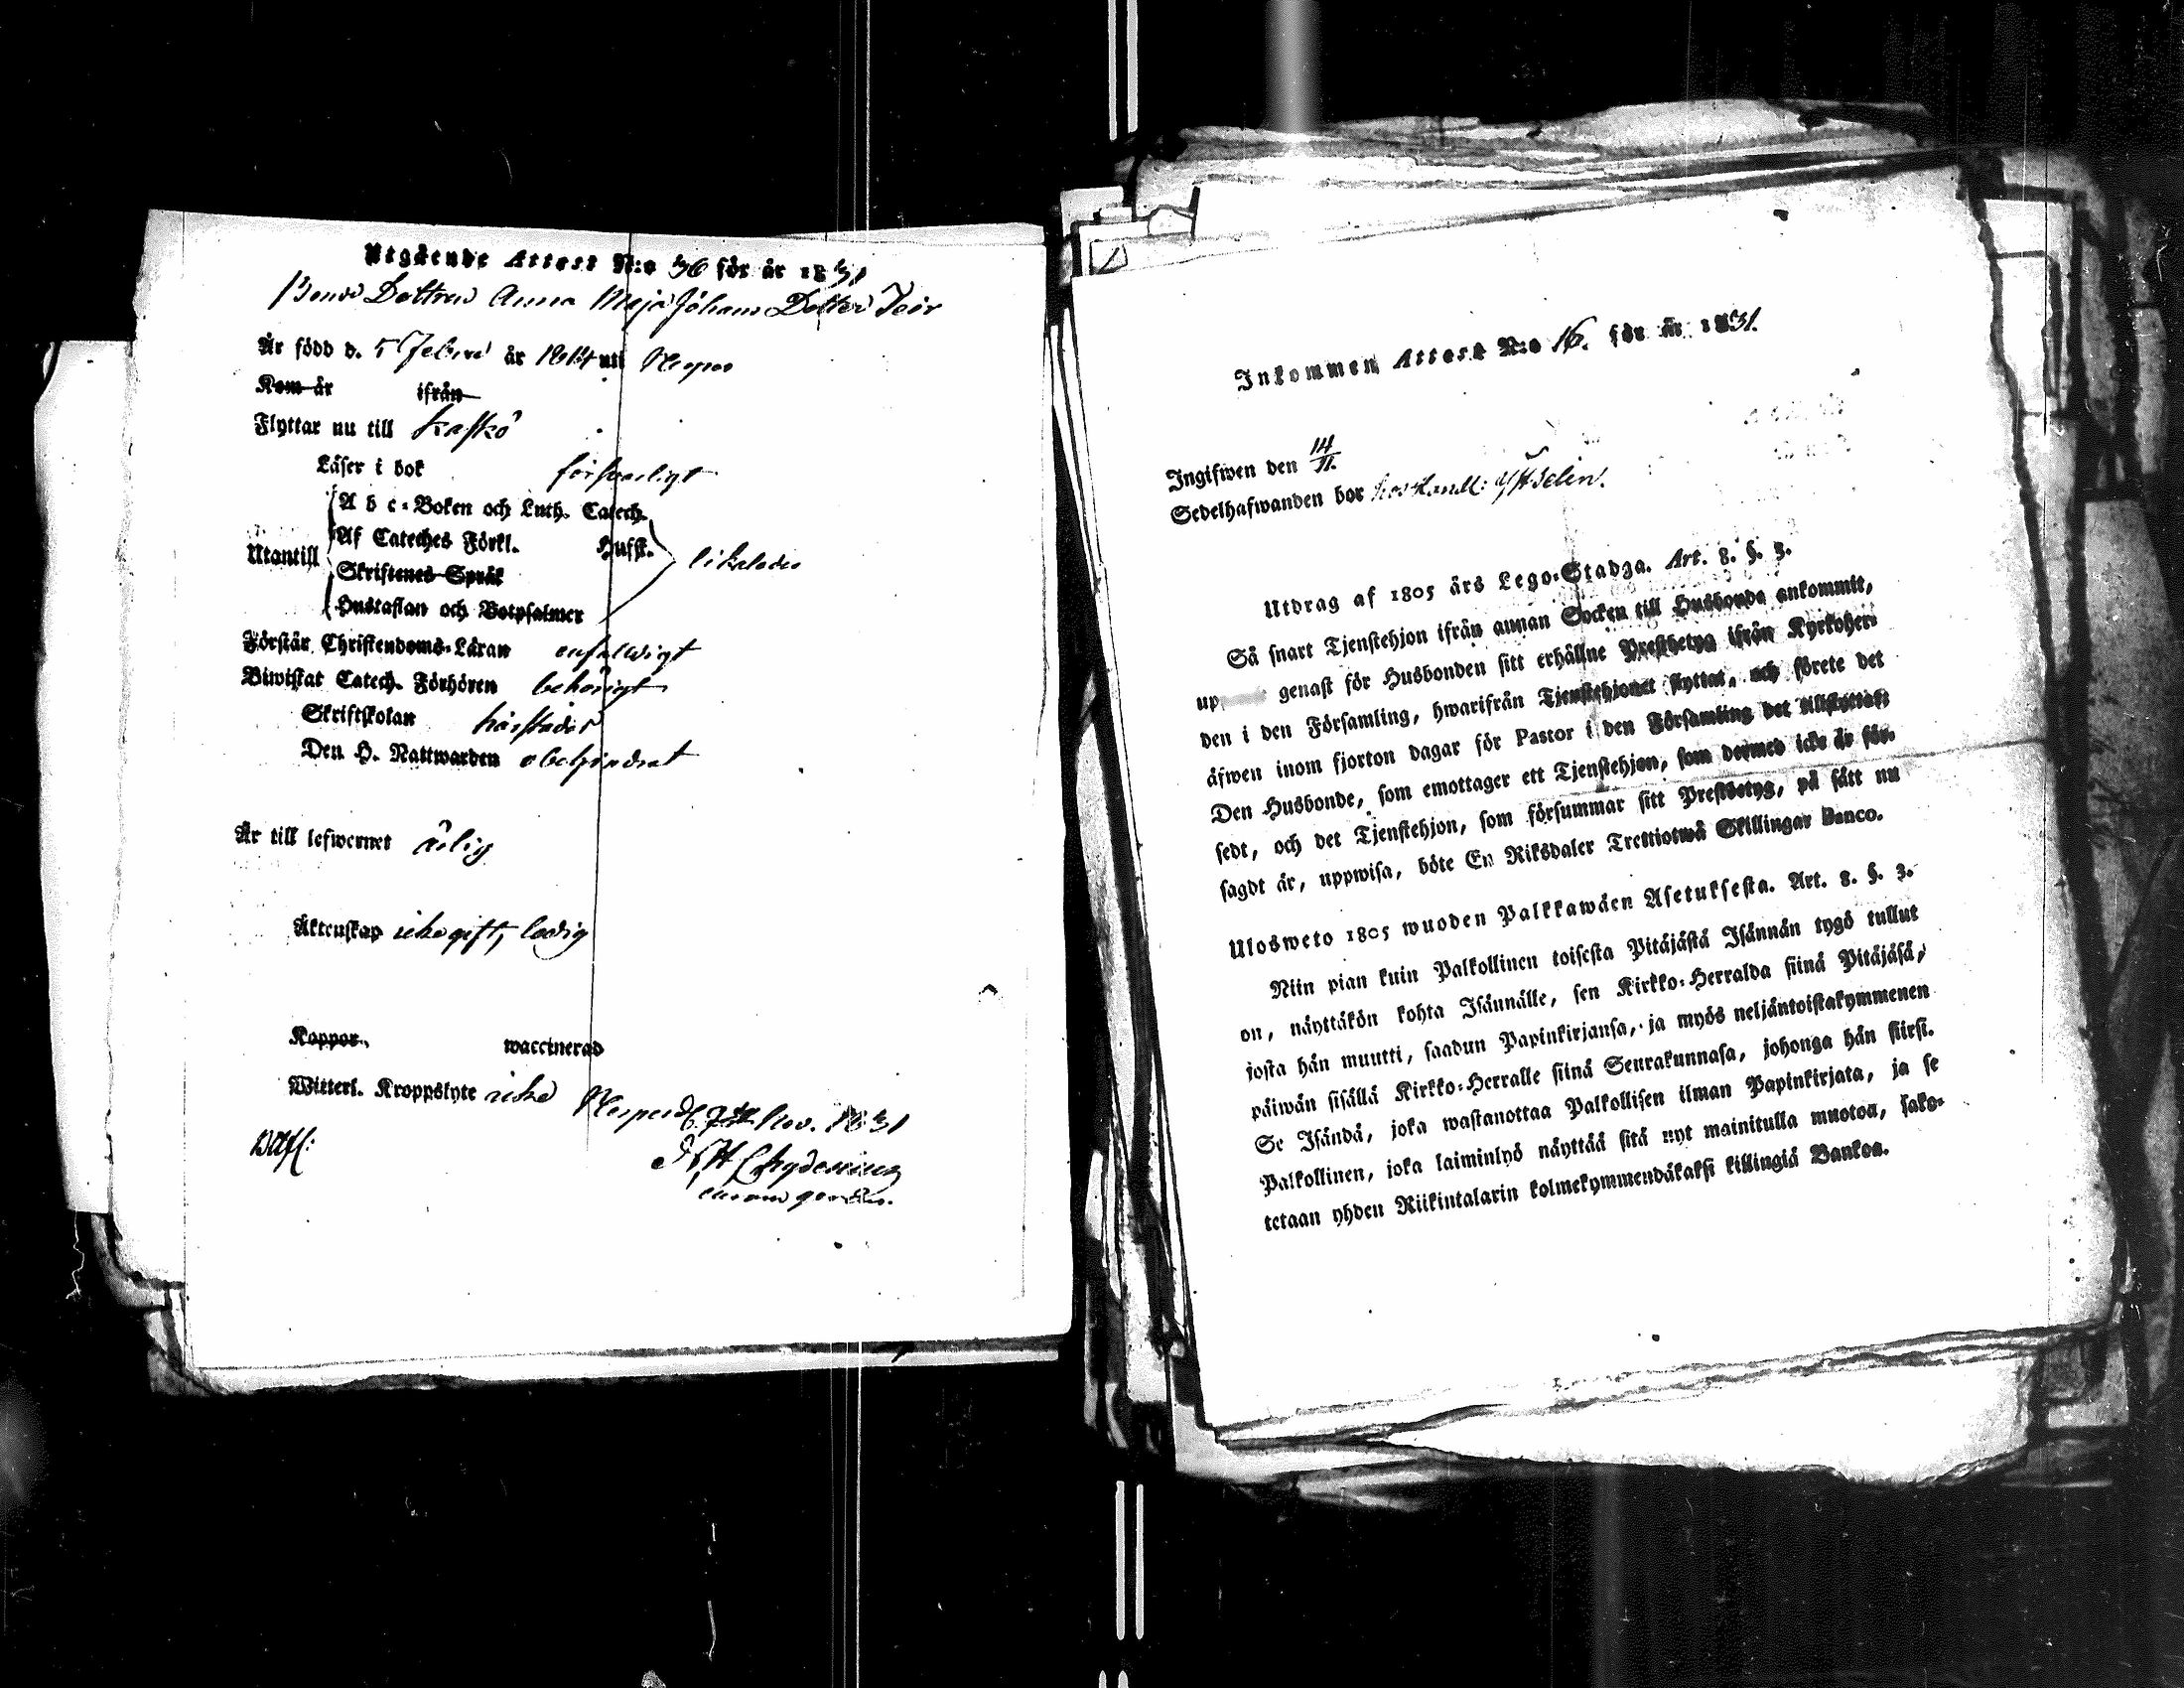 Utgående Attest N:o 36 för år 1831
Bonde Dottren Anna Maja Johans Dotter Teir
Är född d. 5 Febru år 1814 uti Nerpes
Kom år ifrån
Flyttar nu till Kaskö
Läser i bok försvarligt
A b c-Boken och Luth. Catech.
Utantill Af Cateches Förkl. Husst. likaledes
Skriftenes Språk
Hustaflan och Botpsalmer
Förstår Christendoms-Läran enfaldigt
Biwistat Catech. Förhören behörigt
Skriftskolan härstädes
Den H. Nattwarden obehindrat
Är till lefwernet ärlig
Äktenskap icke gift, ledig
Koppor, waccinerad
Witterl. Kroppslyte icke
Nerpes d. 7 Nov. 1831
Chydenius
Inkommen Attest N:o 16. för år 1831.
Ingifwen den 14/11.
Sedelhafwanden bor hos Handl:
Utdrag af 1805 års Lego-Stadga. Art. 8. §. 3.
Så snart Tjenstehjon ifrån annan Socken till Husbonde ankommit,
up genast för Husbonden sitt erhållne Prestbetyg ifrån Kyrkoher-
den i den Församling, hwarifrån Tjenstehjonet flyttat, och förete det
äfwen inom fjorton dagar för Pastor i den Församling det tillflyttat.
Den Husbonde, som emottager ett Tjenstehjon, som dermed icke är för-
sedt, och det Tjenstehjon, som försummar sitt Prestbetyg, på sätt nu
sagdt är, uppwisa, böte En Riksdaler Trettiotwå Skillingar Banco.
Ulosweto 1805 wuoden Palkkawäen Asetuksesta. Art. 8. §. 3.
Niin pian kuin Palkollinen toisesta Pitäjästä Isännän tygö tullut
on, näyttäkön kohta Isännälle, sen Kirkko-Herralda siinä Pitäjäsä,
josta hän muutti, saadun Papinkirjansa, ja myös neljäntoistakymmenen
päiwän sisällä Kirkko-Herralle siinä Seurakunnasa, johonga hän siirsi.
Se Isändä, joka wastanottaa Palkollisen ilman Papinkirjata, ja se
Palkollinen, joka laiminlyö näyttää sitä nyt mainitulla muotoa, sako-
tetaan yhden Riikintalarin kolmekymmendäkaksi killingiä Bankoa.